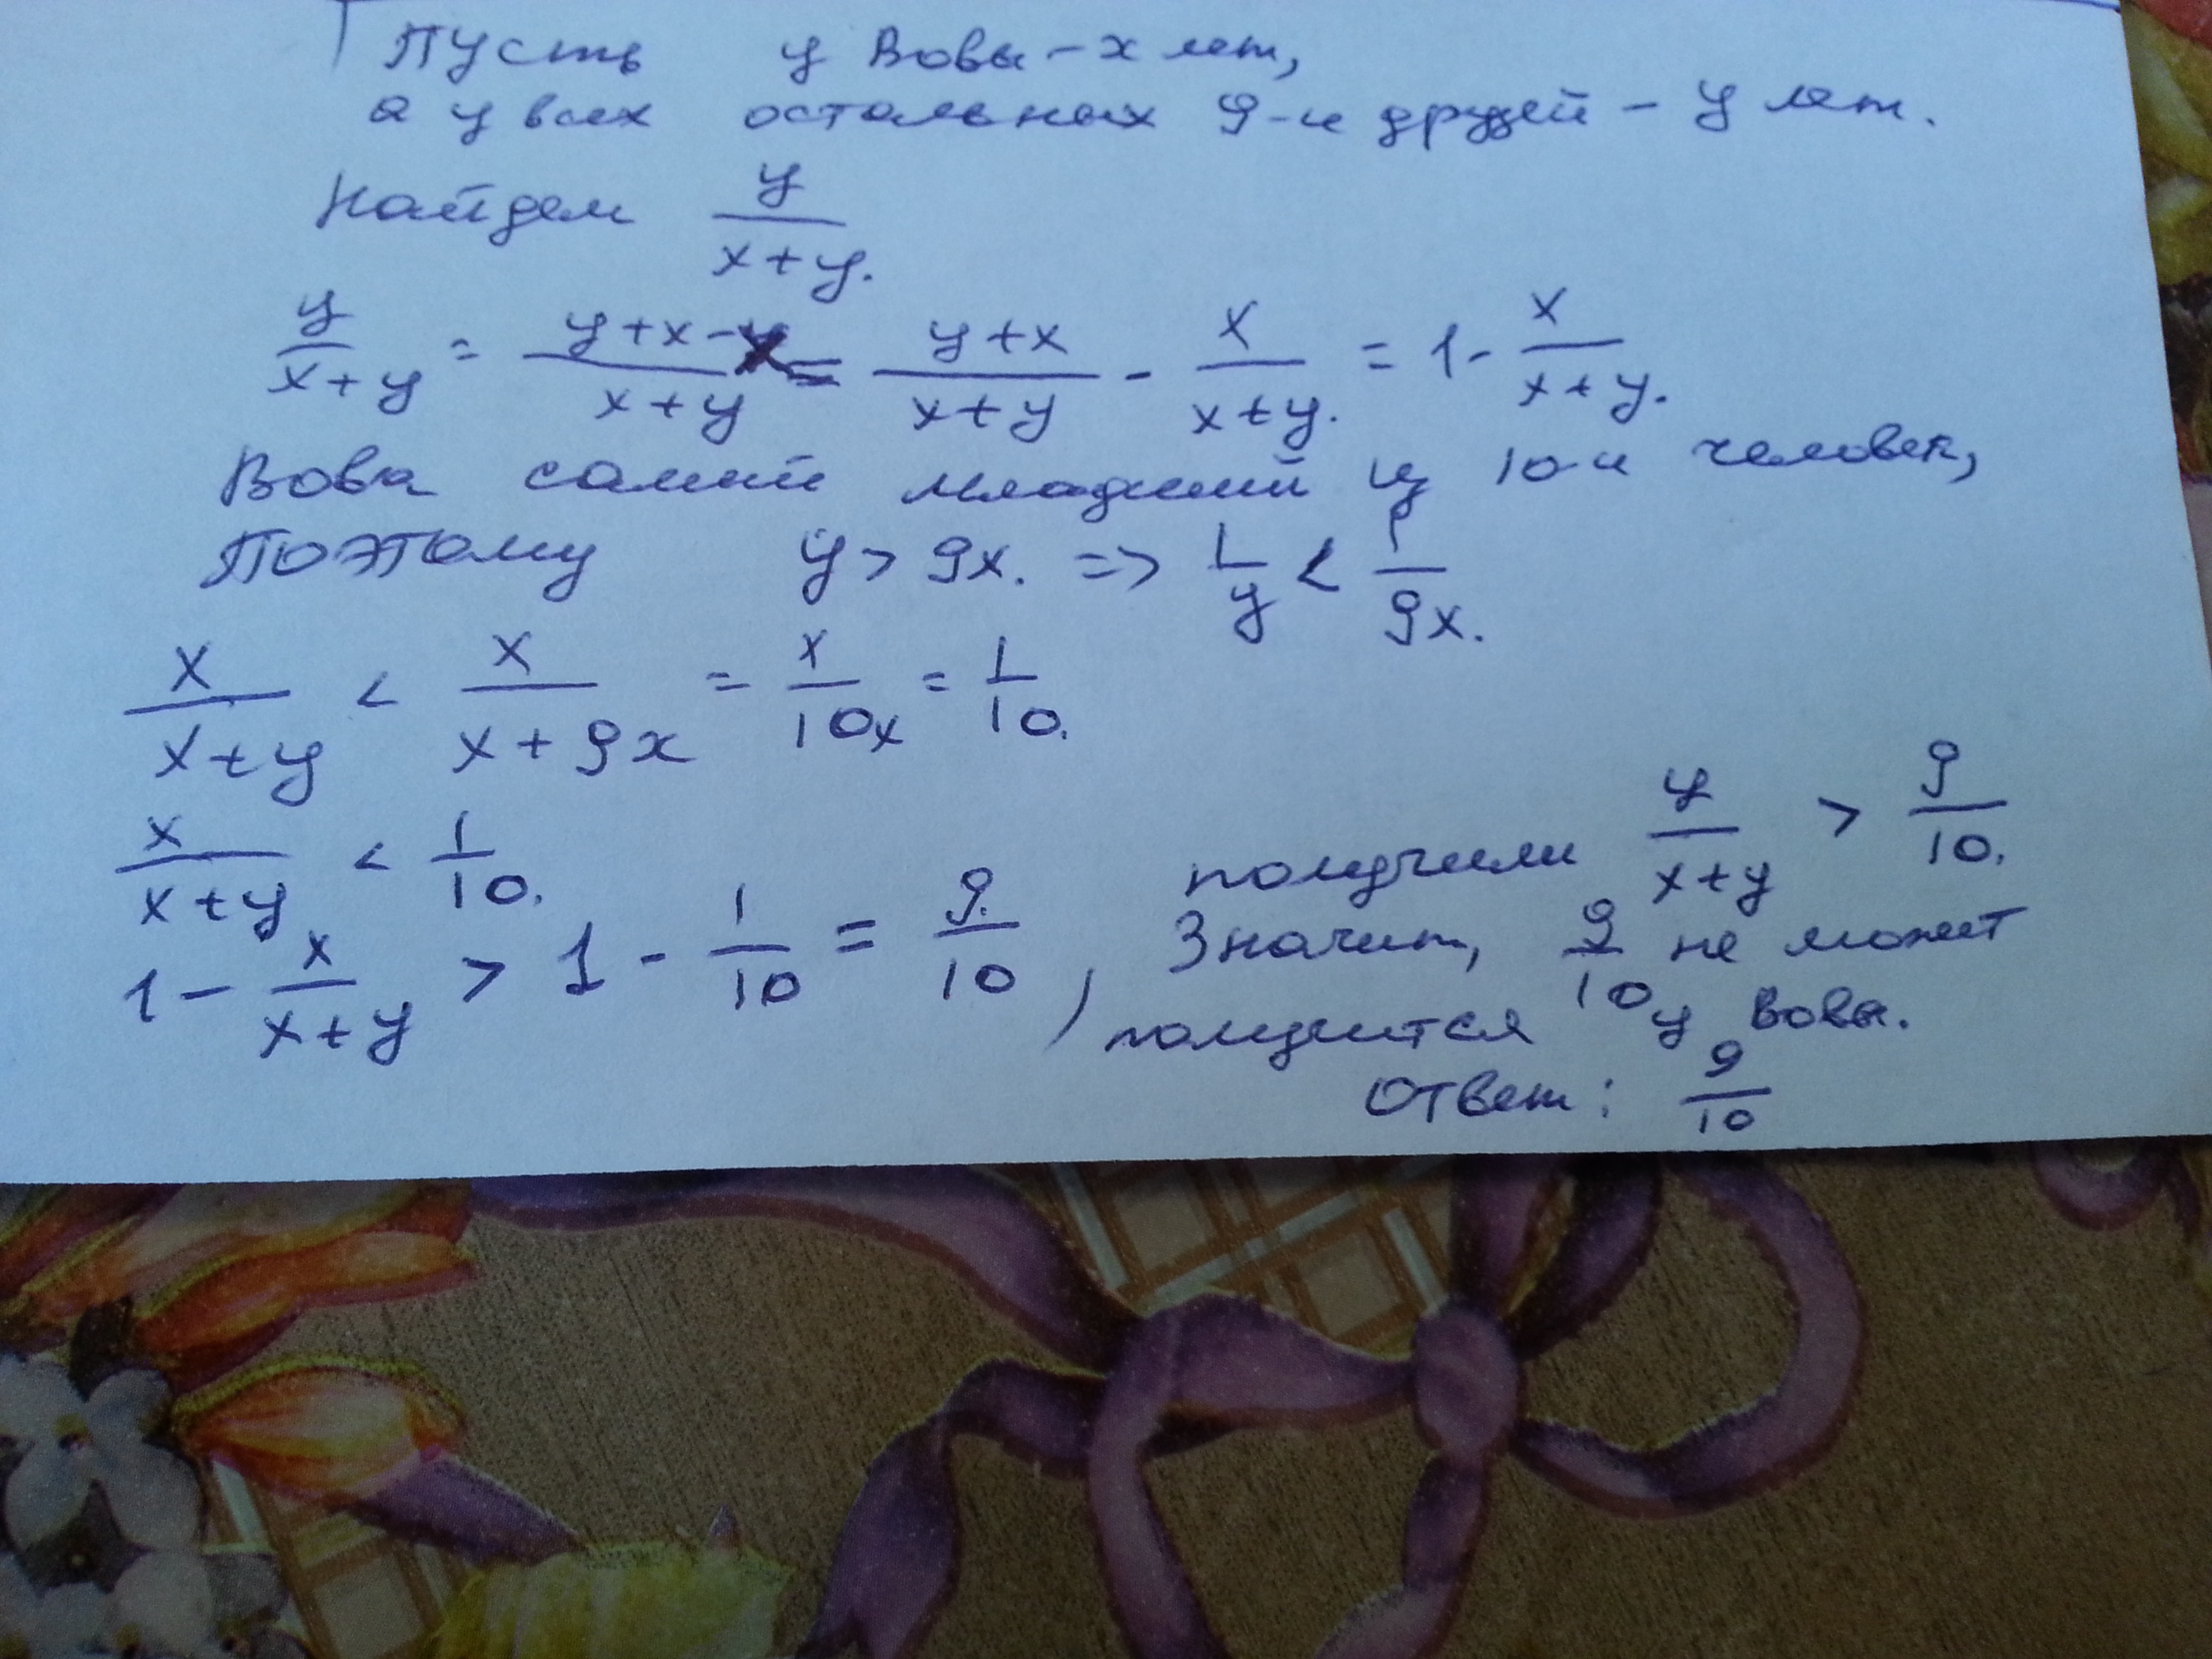 Пусть у Вовы - x лет,
а у всех остальных 9-и друзей - y лет.
Найдем y/(x+y).
y/(x+y) = (y+x-x)/(x+y) = (y+x)/(x+y) - x/(x+y). = 1 - x/(x+y).
Вова самый младший из 10-и человек,
Поэтому y > 9x. => 1/y < 1/9x.
x/(x+y) < x/(x+9x) = x/10x = 1/10.
x/(x+y) < 1/10.
1 - x/(x+y) > 1 - 1/10 = 9/10,
получили y/(x+y) > 9/10.
Значит, 9/10 не может
получится у Вовы.
Ответ: 9/10